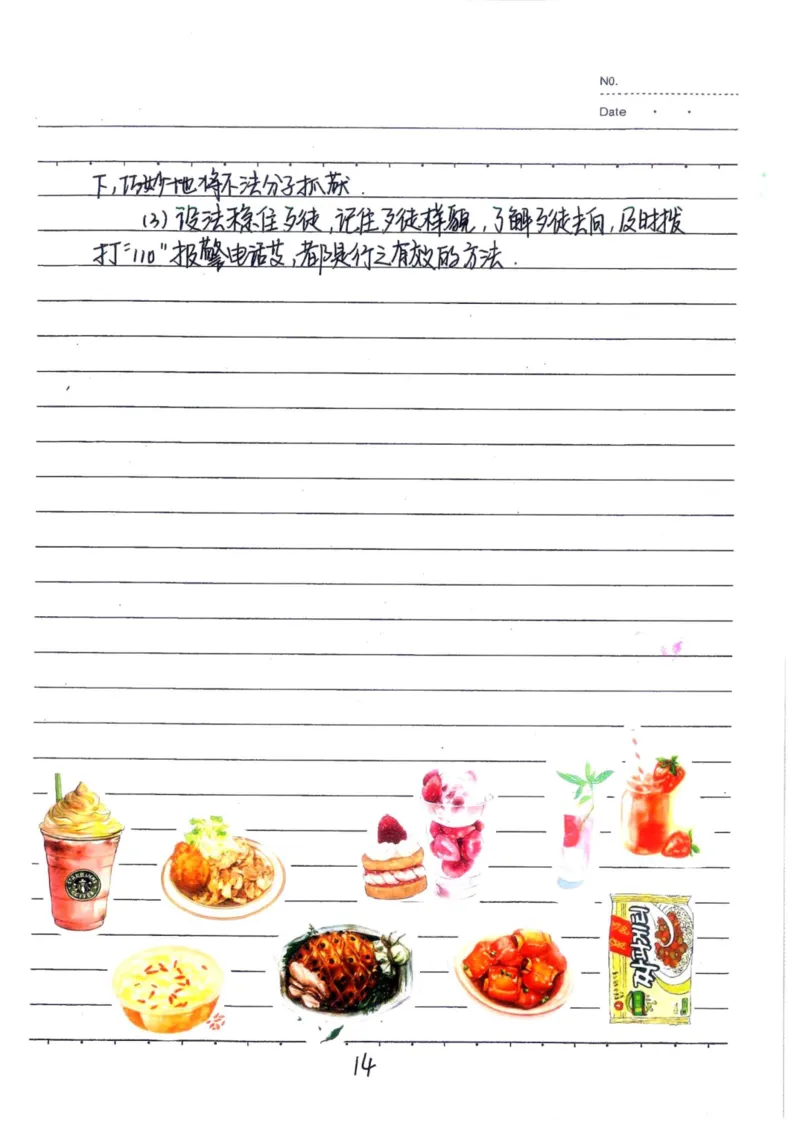 N0.
Date
下,巧妙地将不法分子抓获.
(3)设法稳住歹徒,记住歹徒样貌,了解歹徒去向,及时拨
打"110"报警电话等,都是行之有效的方法.
짜파게티
14